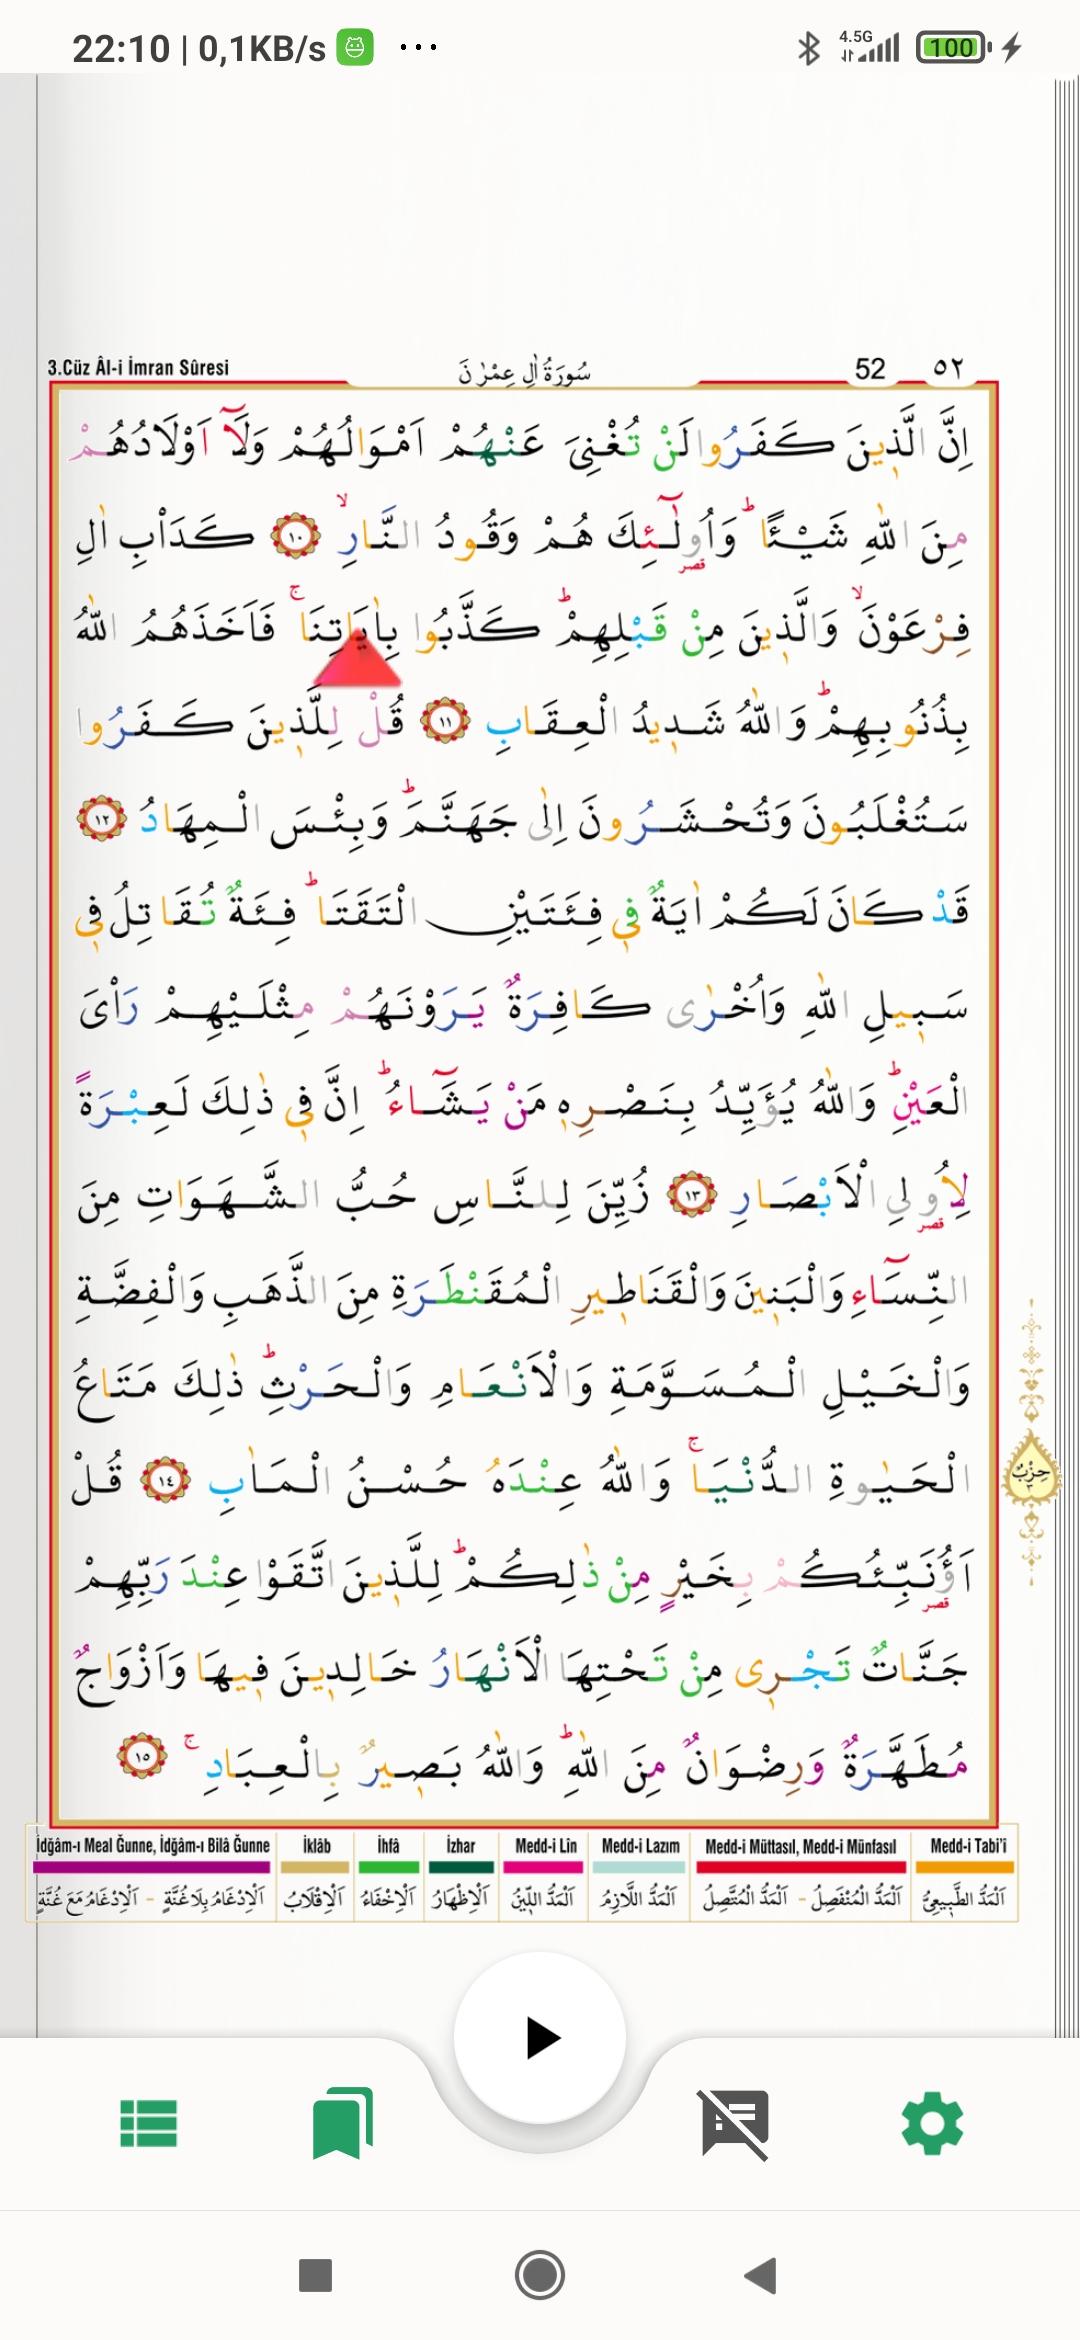 22:10 | 0,1KB/s ... 4.5G 100
3.Cüz Âl-i İmran Sûresi سُورَةُ اٰلِ عِمْرٰنَ 52 ٥٢
اِنَّ الَّذ۪ينَ كَفَرُوا لَنْ تُغْنِيَ عَنْهُمْ اَمْوَالُهُمْ وَلَٓا اَوْلَادُهُمْ
مِنَ اللّٰهِ شَيْـًٔاۜ وَاُو۬لٰٓئِكَ هُمْ وَقُودُ النَّارِۙ ١٠ كَدَاْبِ اٰلِ
فِرْعَوْنَۙ وَالَّذ۪ينَ مِنْ قَبْلِهِمْۜ كَذَّبُوا بِاٰيَاتِنَاۚ فَاَخَذَهُمُ اللّٰهُ
بِذُنُوبِهِمْۜ وَاللّٰهُ شَد۪يدُ الْعِقَابِ ١١ قُلْ لِلَّذ۪ينَ كَفَرُوا
سَتُغْلَبُونَ وَتُحْشَرُونَ اِلٰى جَهَنَّمَۜ وَبِئْسَ الْمِهَادُ ١٢
قَدْ كَانَ لَكُمْ اٰيَةٌ ف۪ي فِئَتَيْنِ الْتَقَتَاۜ فِئَةٌ تُقَاتِلُ ف۪ي
سَب۪يلِ اللّٰهِ وَاُخْرٰى كَافِرَةٌ يَرَوْنَهُمْ مِثْلَيْهِمْ رَأْيَ
الْعَيْنِۜ وَاللّٰهُ يُؤَيِّدُ بِنَصْرِه۪ مَنْ يَشَٓاءُۜ اِنَّ ف۪ي ذٰلِكَ لَعِبْرَةً
لِاُو۬لِي الْاَبْصَارِ ١٣ زُيِّنَ لِلنَّاسِ حُبُّ الشَّهَوَاتِ مِنَ
النِّسَٓاءِ وَالْبَن۪ينَ وَالْقَنَاط۪يرِ الْمُقَنْطَرَةِ مِنَ الذَّهَبِ وَالْفِضَّةِ
وَالْخَيْلِ الْمُسَوَّمَةِ وَالْاَنْعَامِ وَالْحَرْثِۜ ذٰلِكَ مَتَاعُ
الْحَيٰوةِ الدُّنْيَاۚ وَاللّٰهُ عِنْدَهُ حُسْنُ الْمَاٰبِ ١٤ قُلْ
اَؤُ۬نَبِّئُكُمْ بِخَيْرٍ مِنْ ذٰلِكُمْۜ لِلَّذ۪ينَ اتَّقَوْا عِنْدَ رَبِّهِمْ
جَنَّاتٌ تَجْر۪ي مِنْ تَحْتِهَا الْاَنْهَارُ خَالِد۪ينَ ف۪يهَا وَاَزْوَاجٌ
مُطَهَّرَةٌ وَرِضْوَانٌ مِنَ اللّٰهِۜ وَاللّٰهُ بَص۪يرٌ بِالْعِبَادِۚ ١٥
حِزْبٌ ٣
İdğâm-ı Meal Ğunne, İdğâm-ı Bilâ Ğunne İklâb İhfâ İzhar Medd-i Lin Medd-i Lazım Medd-i Müttasıl, Medd-i Münfasıl Medd-i Tabî'i
اَلْمَدُّ الطَّب۪يعِيُّ اَلْمَدُّ الْمُنْفَصِلُ - اَلْمَدُّ الْمُتَّصِلُ اَلْمَدُّ اللَّازِمُ اَلْمَدُّ اللّ۪ينُ اَلْاِظْهَارُ اَلْاِخْفَاءُ اَلْاِقْلَابُ اَلْاِدْغَامُ بِلَا غُنَّةٍ - اَلْاِدْغَامُ مَعَ غُنَّةٍ